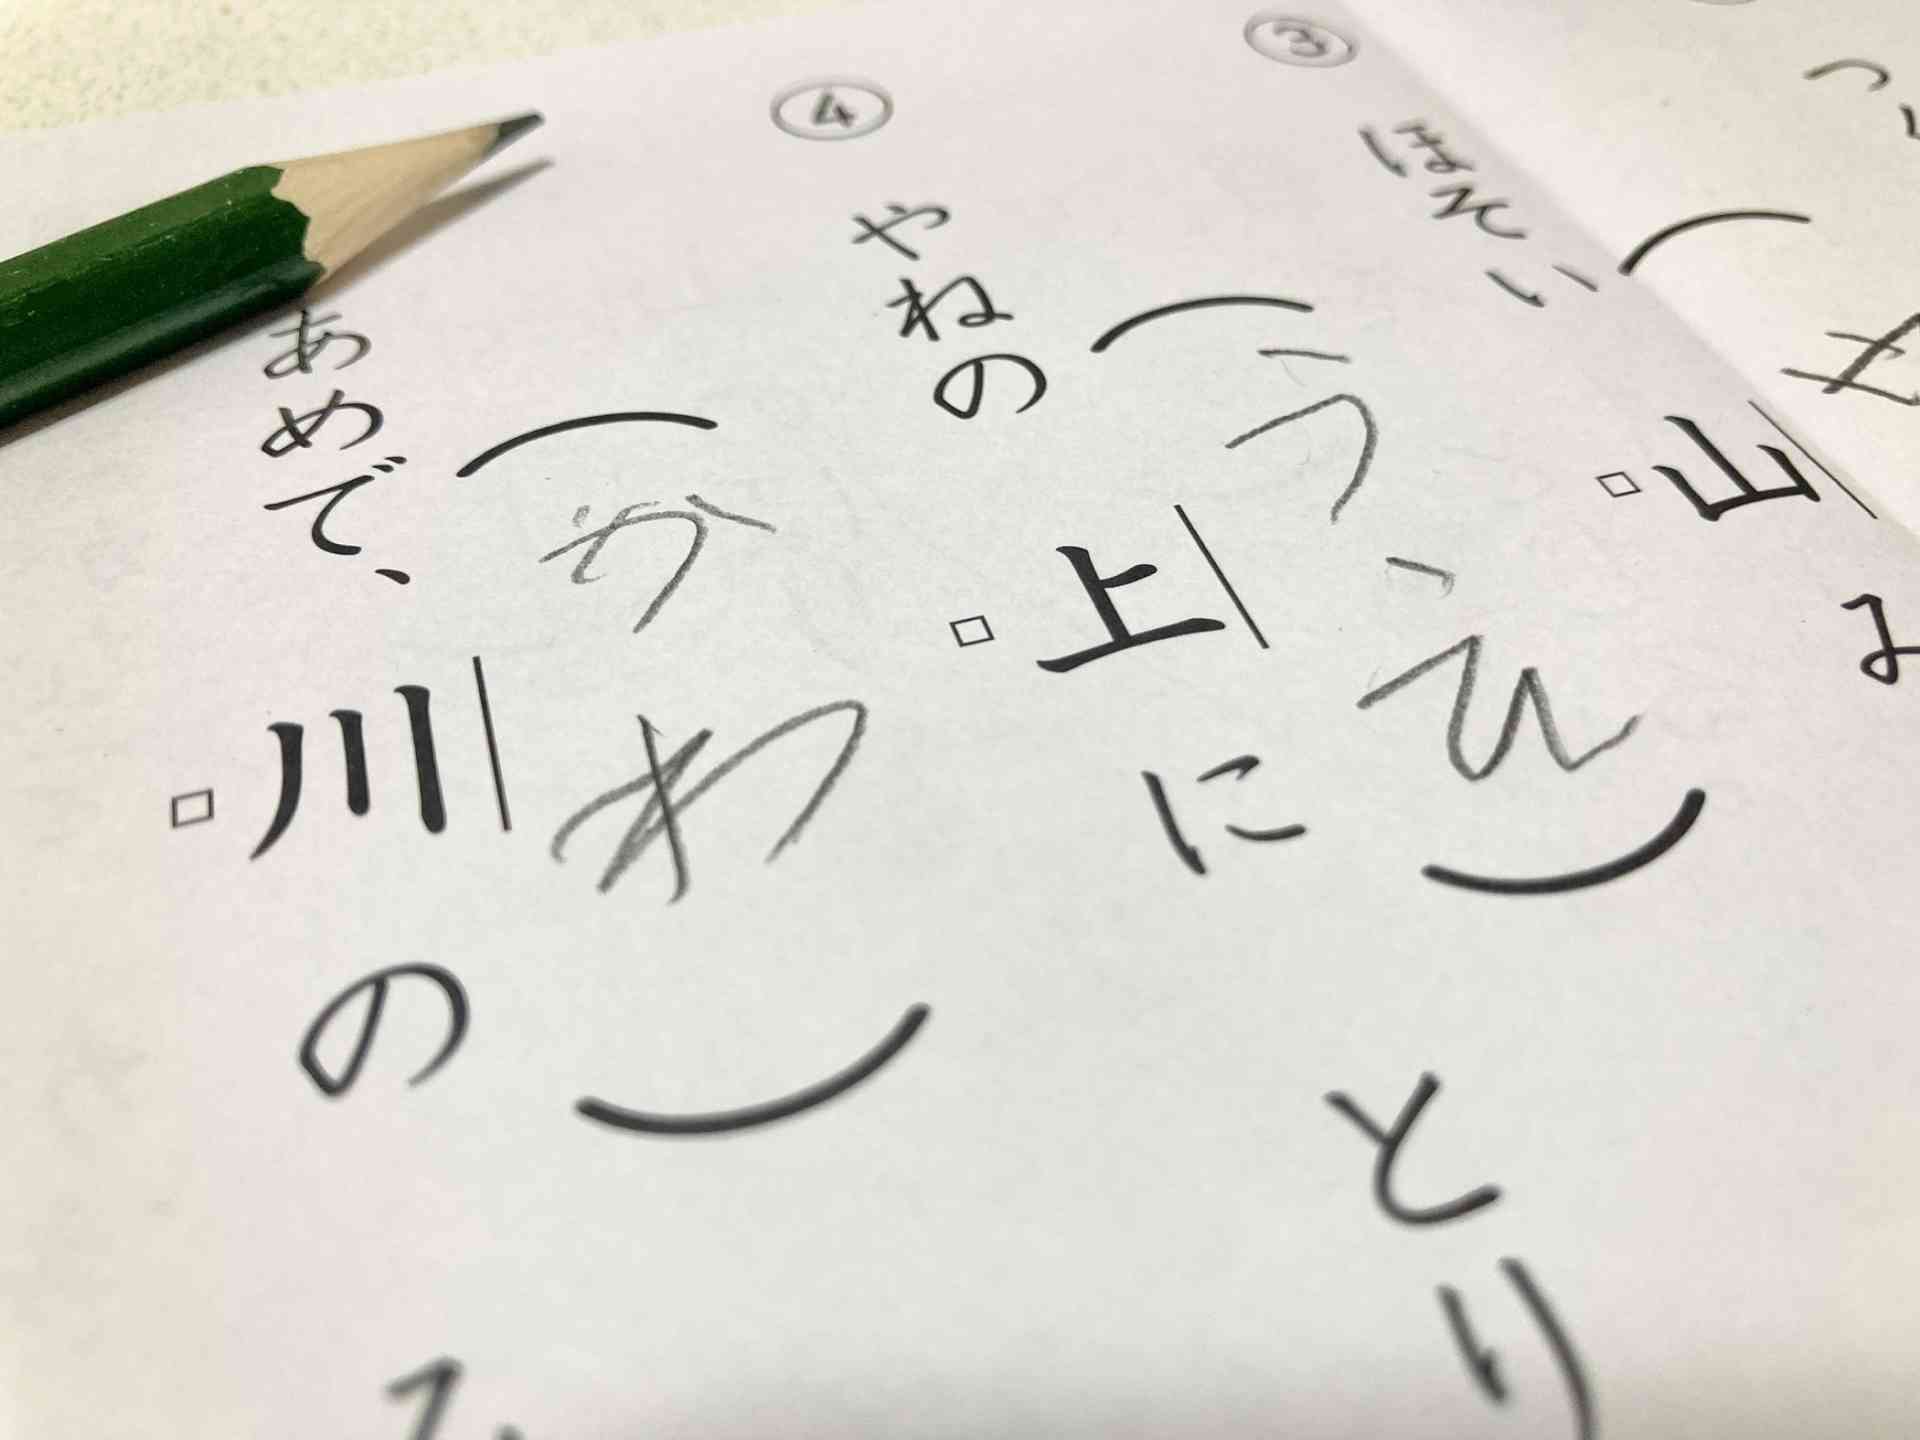 ③
ほそい山
④
やねの上にとり
うえ
あめで、川の
かわ